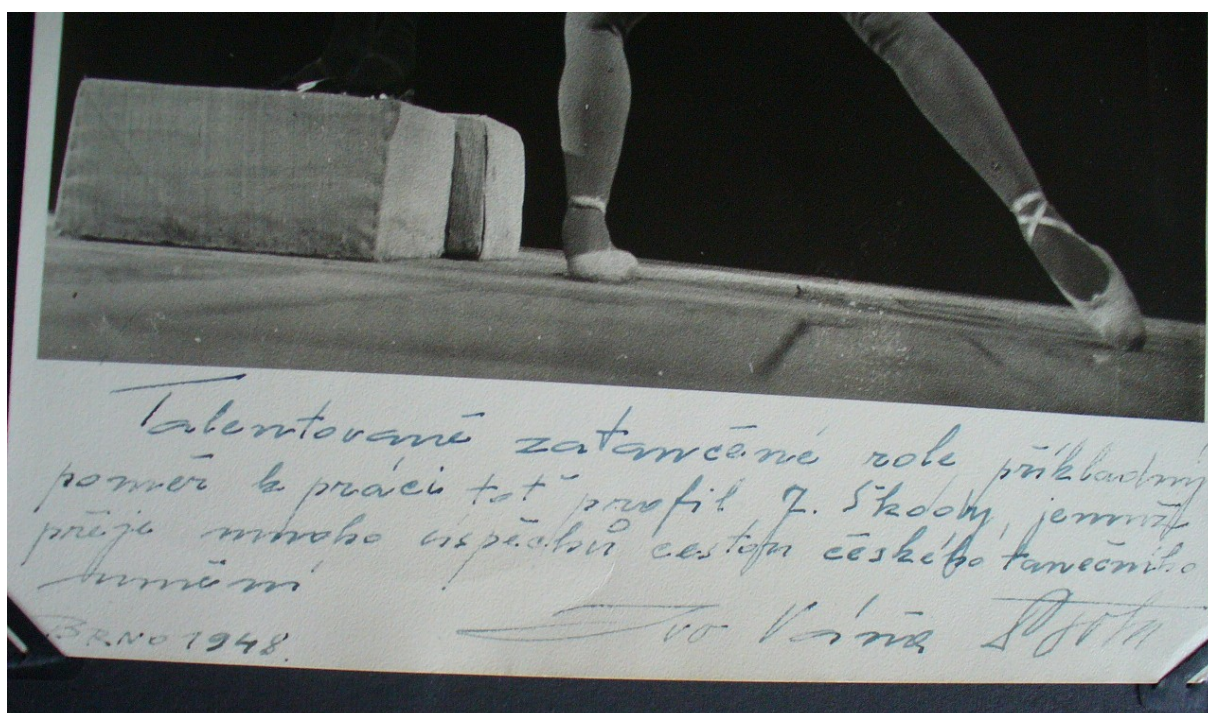 Talentovaně zatančené role příkladný
poměr k práci toť profil J. Škody, jemuž
přeje mnoho úspěchů cestou českého tanečního
umění
BRNO 1948.
Ivo Váňa Psota